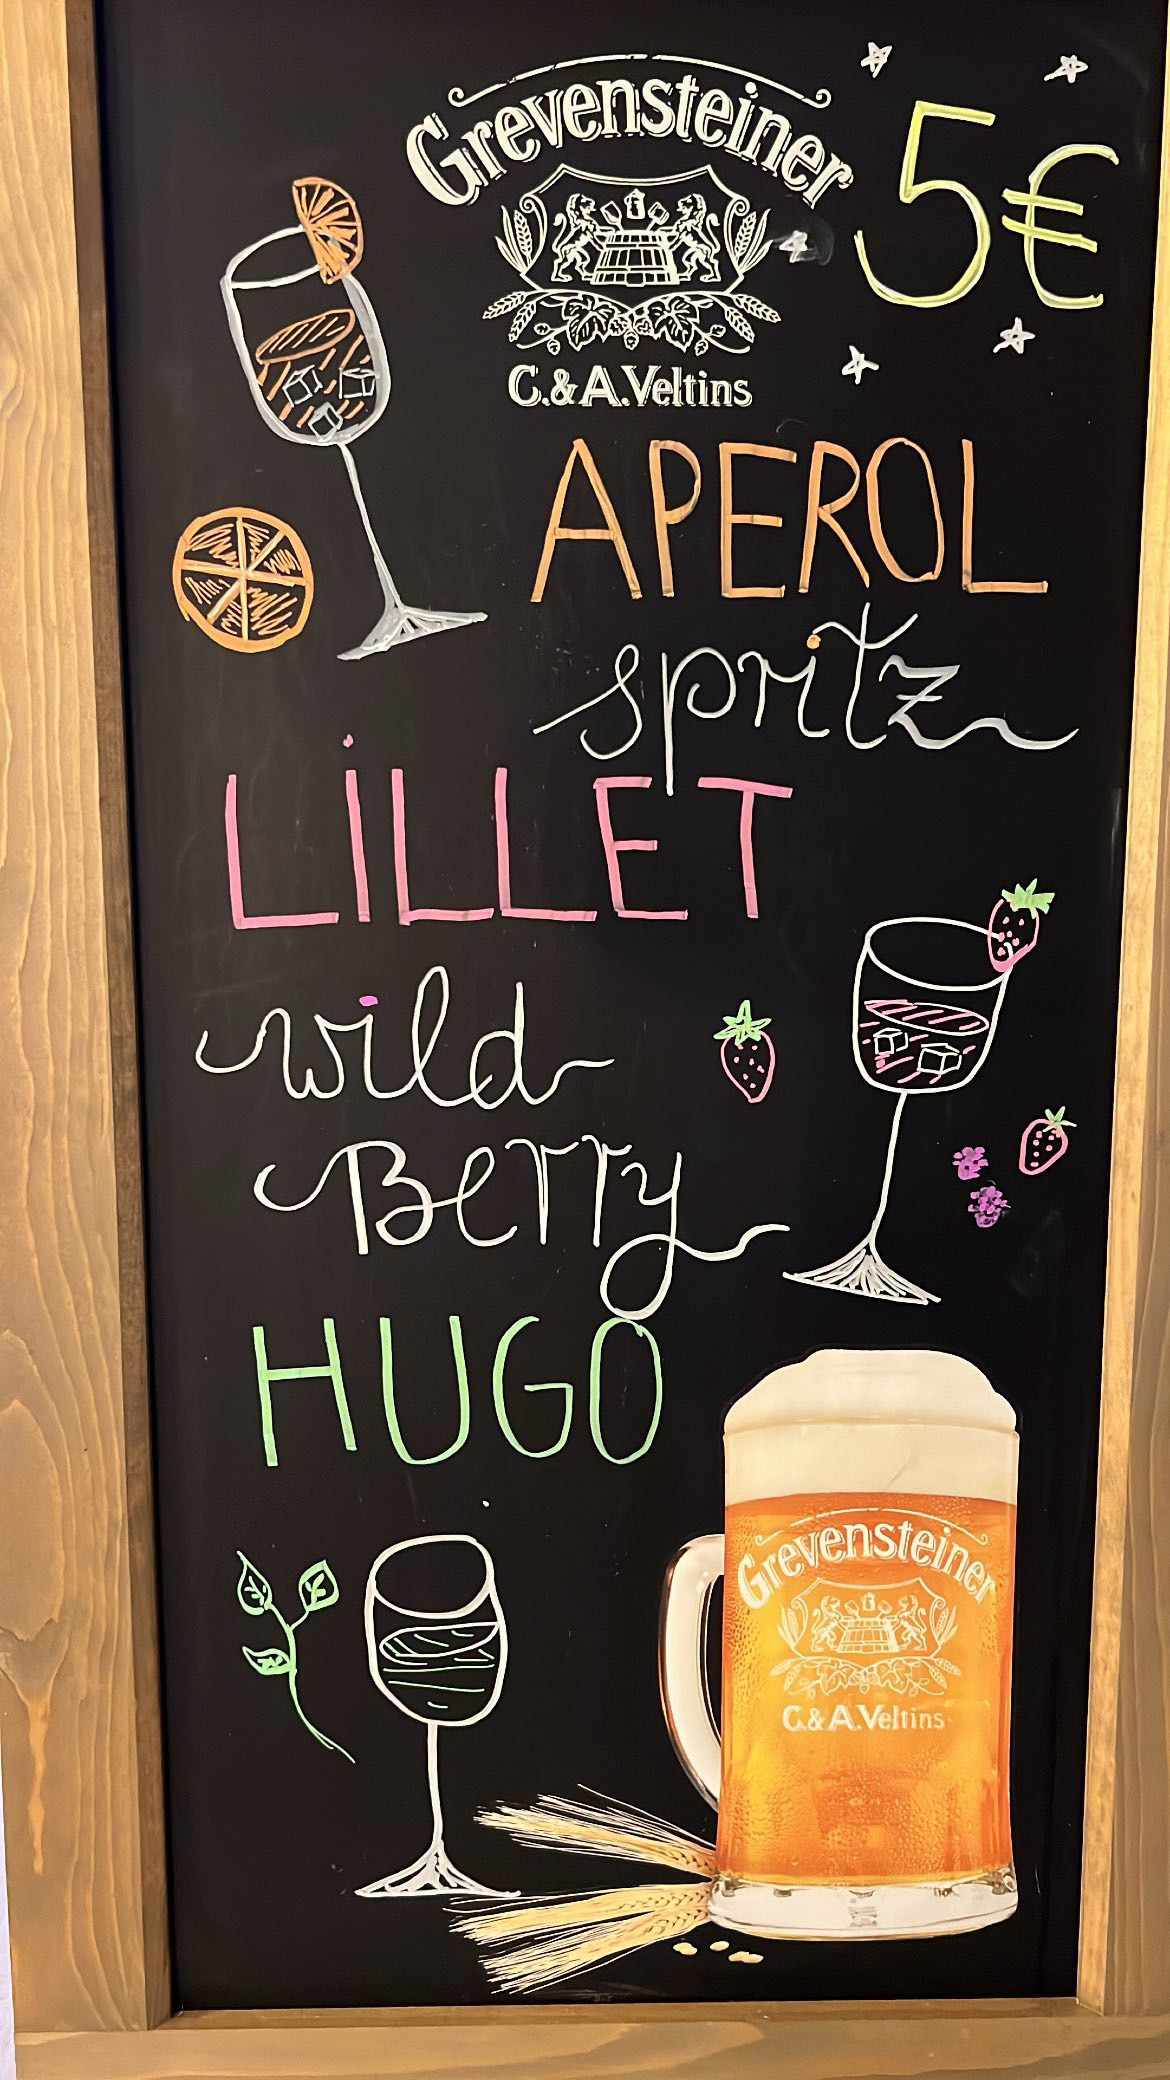 Grevensteiner
5€
C.&A.Veltins
APEROL
spritz
LiLLET
wild
Berry
HUGO
Grevensteiner
C.&A.Veltins